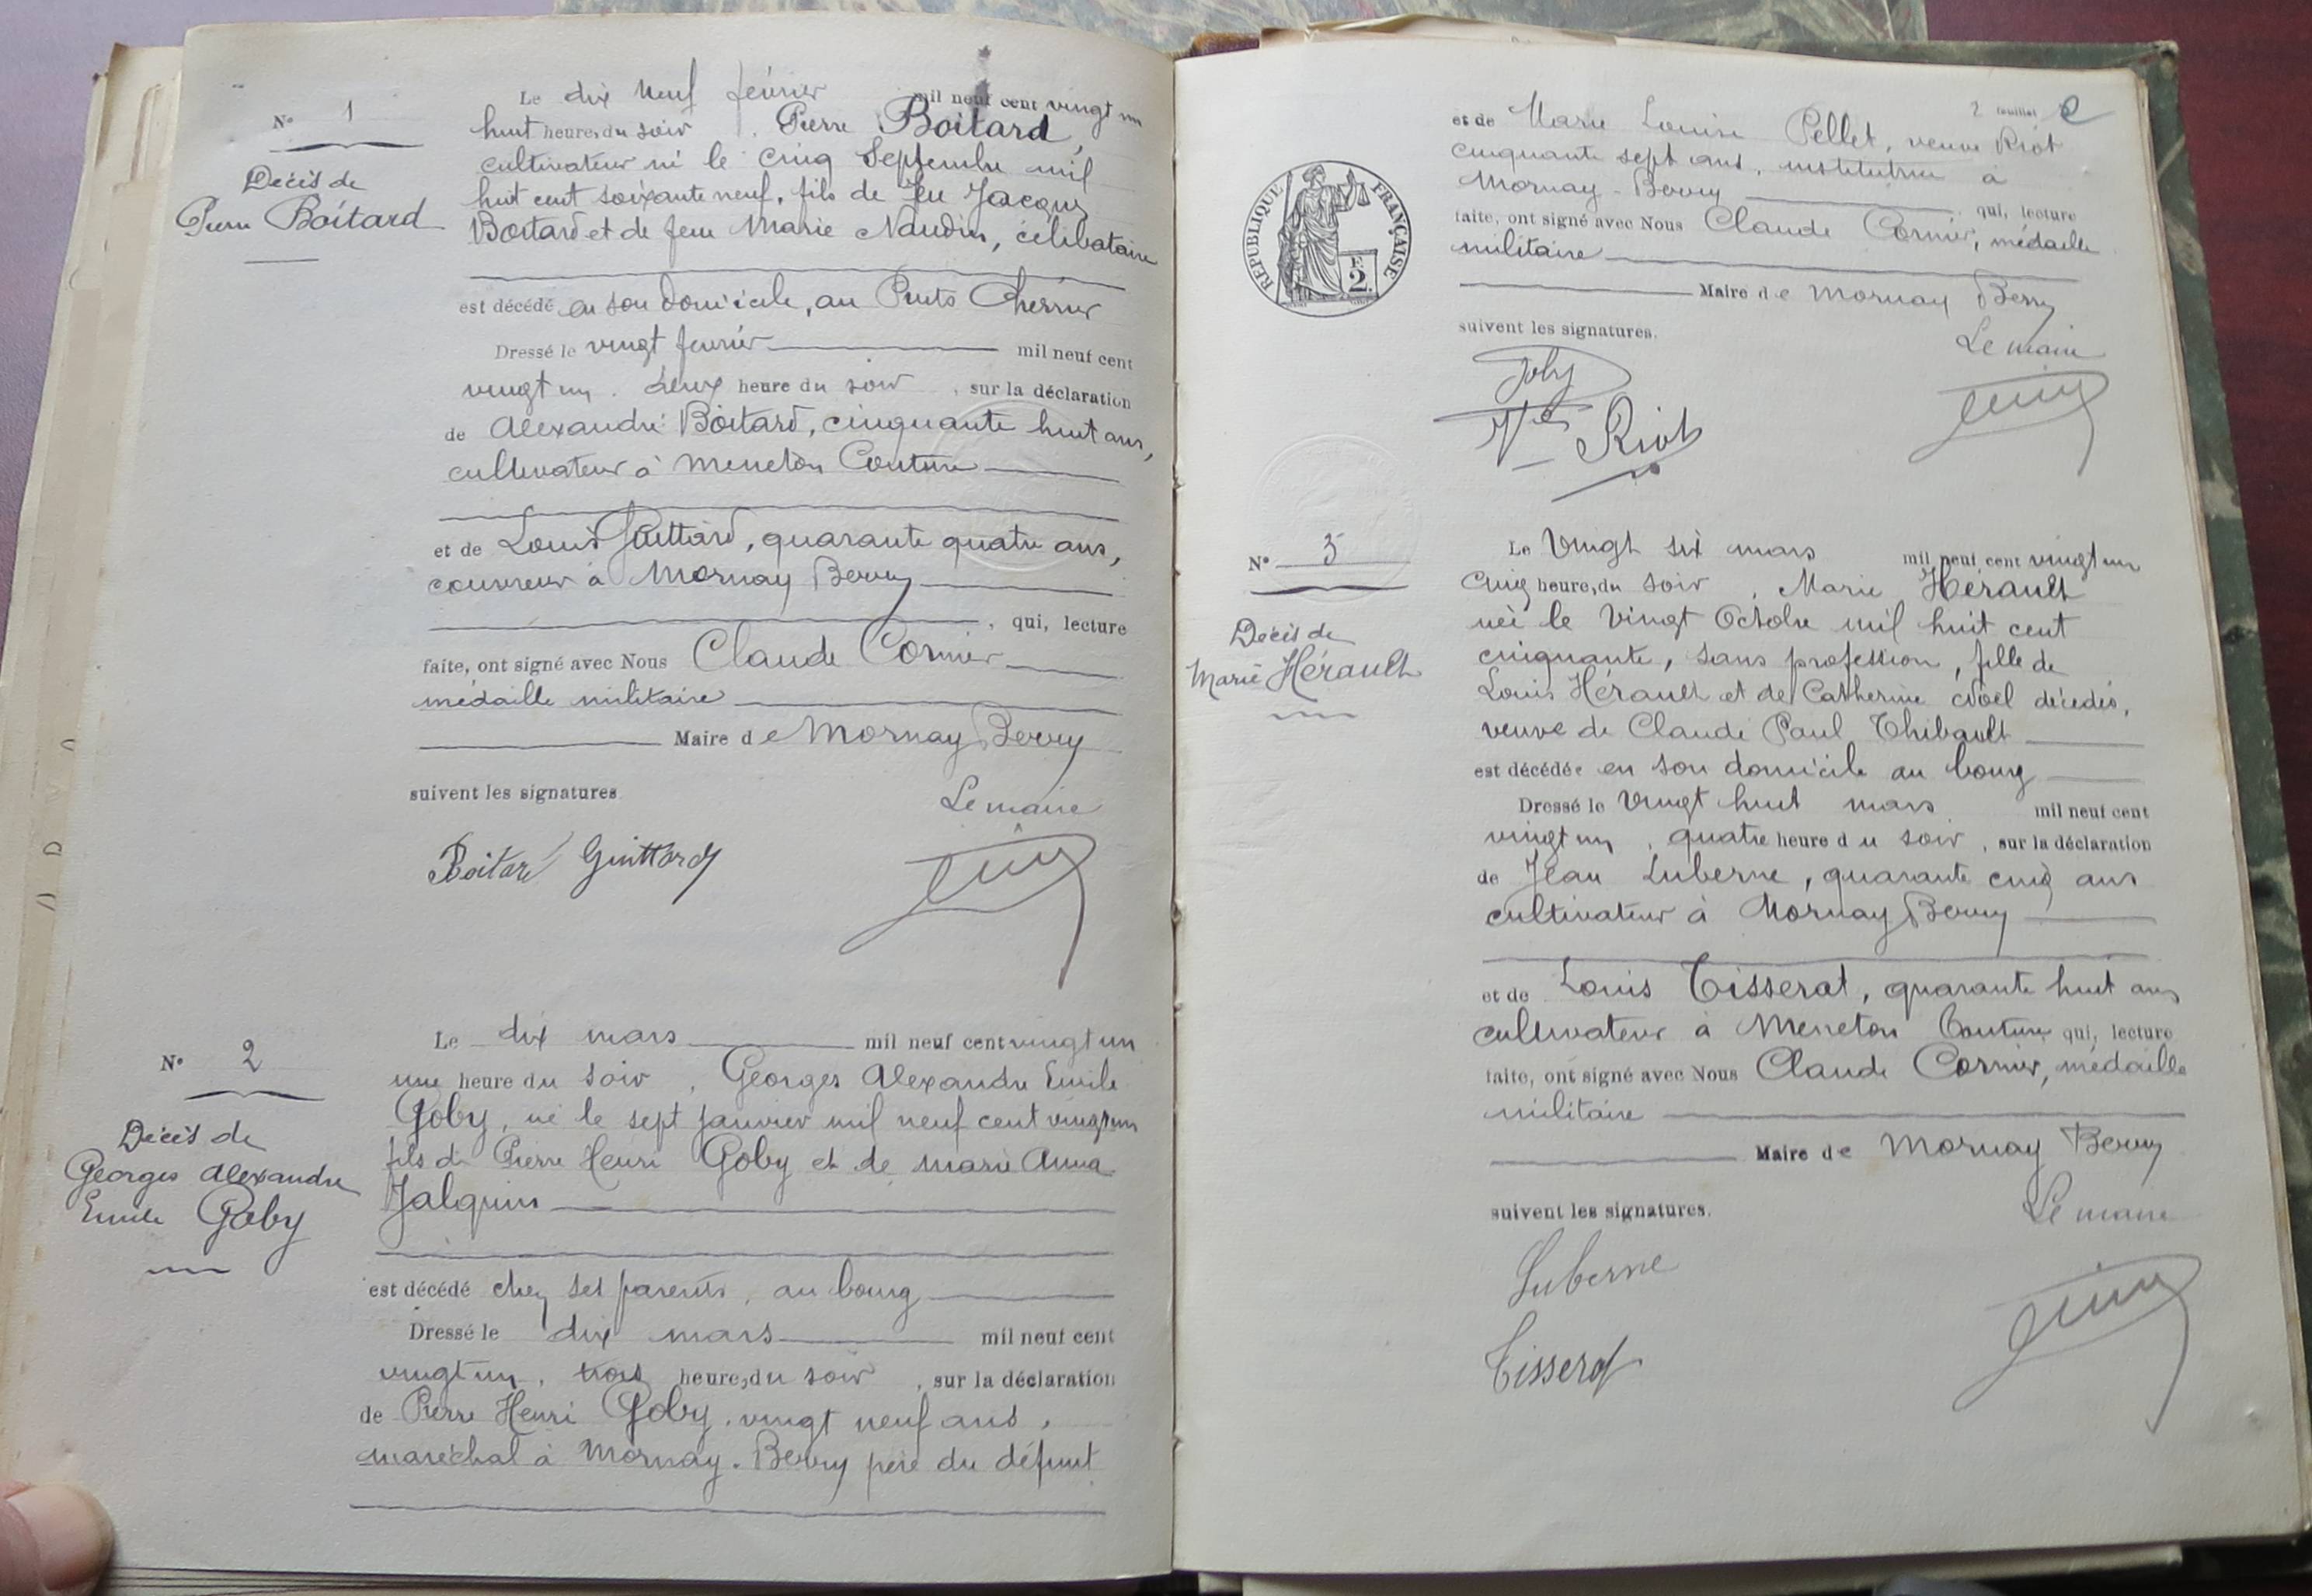 N° 1
Décès de
Pierre Boitard
Le dix neuf février mil neuf cent vingt un
huit heures du soir, Pierre Boitard,
cultivateur né le cinq Septembre mil
huit cent soixante neuf, fils de feu Jacques
Boitard et de feue Marie Naudin, célibataire
est décédé en son domicile, au Puits Cherrier
Dressé le vingt février mil neuf cent
vingt un, deux heure du soir, sur la déclaration
de Alexandre Boitard, cinquante huit ans,
cultivateur à Menetou Couture
et de Louis Guittard, quarante quatre ans,
couvreur à Mornay Berry
, qui, lecture
faite, ont signé avec Nous Claude Cornier
médaille militaire
Maire de Mornay Berry
suivent les signatures
Le maire
Boitard Guittard
N° 2
Décès de
Georges Alexandre
Emile Goby
Le dix mars mil neuf cent vingt un
une heure du soir, Georges Alexandre Emile
Goby, né le sept janvier mil neuf cent vingt un
fils de Pierre Henri Goby et de Marie Anna
Jalquin
est décédé chez ses parents, au bourg
Dressé le dix mars mil neuf cent
vingt un, trois heures du soir, sur la déclaration
de Pierre Henri Goby, vingt neuf ans,
maréchal à Mornay-Berry père du défunt
2 feuillet 2
et de Marie Louise Pellet, veuve Riot
cinquante sept ans, institutrice à
Mornay-Berry, qui, lecture
faite, ont signé avec Nous Claude Cornier, médaille
militaire
Maire de Mornay Berry
suivent les signatures.
Le maire
Goby
Vve Riot
RÉPUBLIQUE FRANÇAISE
F.
2.
N° 3
Décès de
Marie Hérault
Le Vingt six mars mil neuf cent vingt un
cinq heures du soir, Marie Hérault
née le vingt Octobre mil huit cent
cinquante, sans profession, fille de
Louis Hérault et de Catherine Noël décédés,
veuve de Claude Paul Thibault
est décédée en son domicile au bourg
Dressé le vingt huit mars mil neuf cent
vingt un, quatre heure du soir, sur la déclaration
de Jean Luberne, quarante cinq ans
cultivateur à Mornay Berry
et de Louis Tisserat, quarante huit ans
cultivateur à Menetou Couture qui, lecture
faite, ont signé avec Nous Claude Cornier, médaille
militaire
Maire de Mornay Berry
suivent les signatures.
Le maire
Luberne
Tisserat